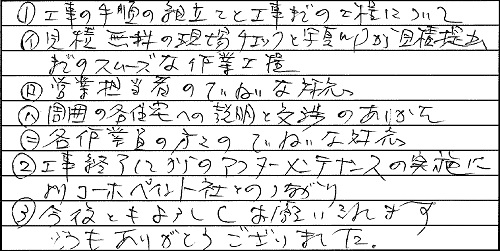 ① 工事の手順の組立てと工事までの工程について
㋑ 見積無料の現場チェックと写真入り 見積提出
までのスムーズな作業工程
㋺ 営業担当者のていねいな対応
㋩ 周囲の各住宅への説明と交渉のありかた
㊁ 各作業員の方々のていねいな対応
② 工事終了してからのアフターメンテナンスの実施に
より コーホペイント社とのつながり
③ 今後ともよろしくお願いされます
どうもありがとうございました。